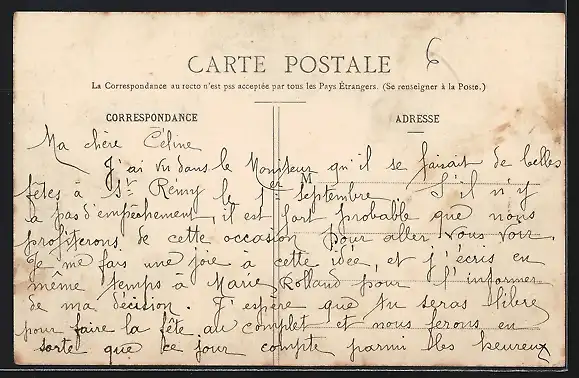 6
CARTE POSTALE
La Correspondance au recto n'est pss acceptée par tous les Pays Étrangers. (Se renseigner à la Poste.)
CORRESPONDANCE
ADRESSE
M
Ma chère Céline
J'ai vu dans le Moniteur qu'il se faisait de belles
fêtes à St Rémy le 1er Septembre S'il n'y
a pas d'empêchement, il est fort probable que nous
profiterons de cette occasion pour aller vous voir.
Je me fais une joie à cette idée et j'écris en
même temps à Marie Rolland pour l'informer
de ma décision. J'espère que tu seras libre
pour faire la fête au complet et nous ferons en
sorte que ce jour compte parmi les heureux